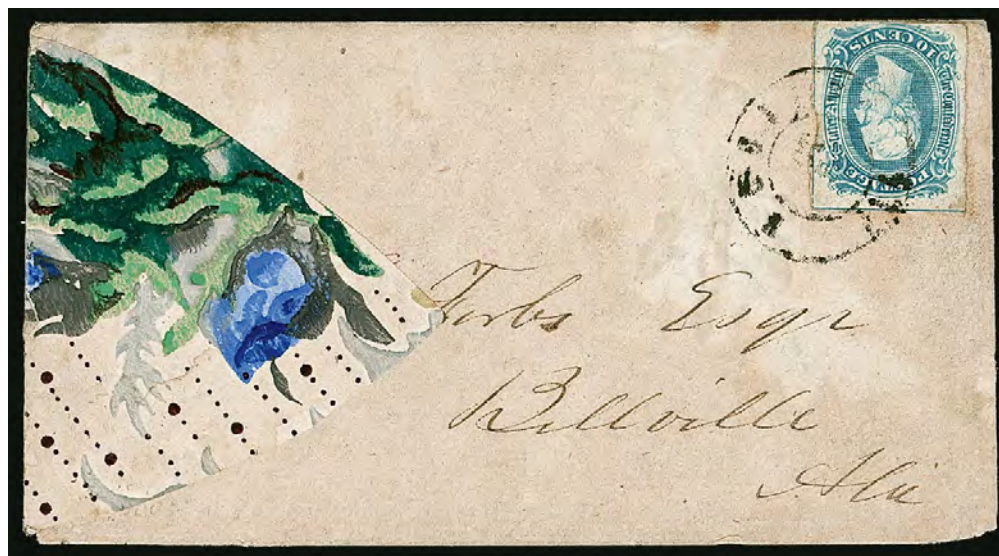 10 CENTS
POSTAGE
Forbs Esqr
Bellville
Ala